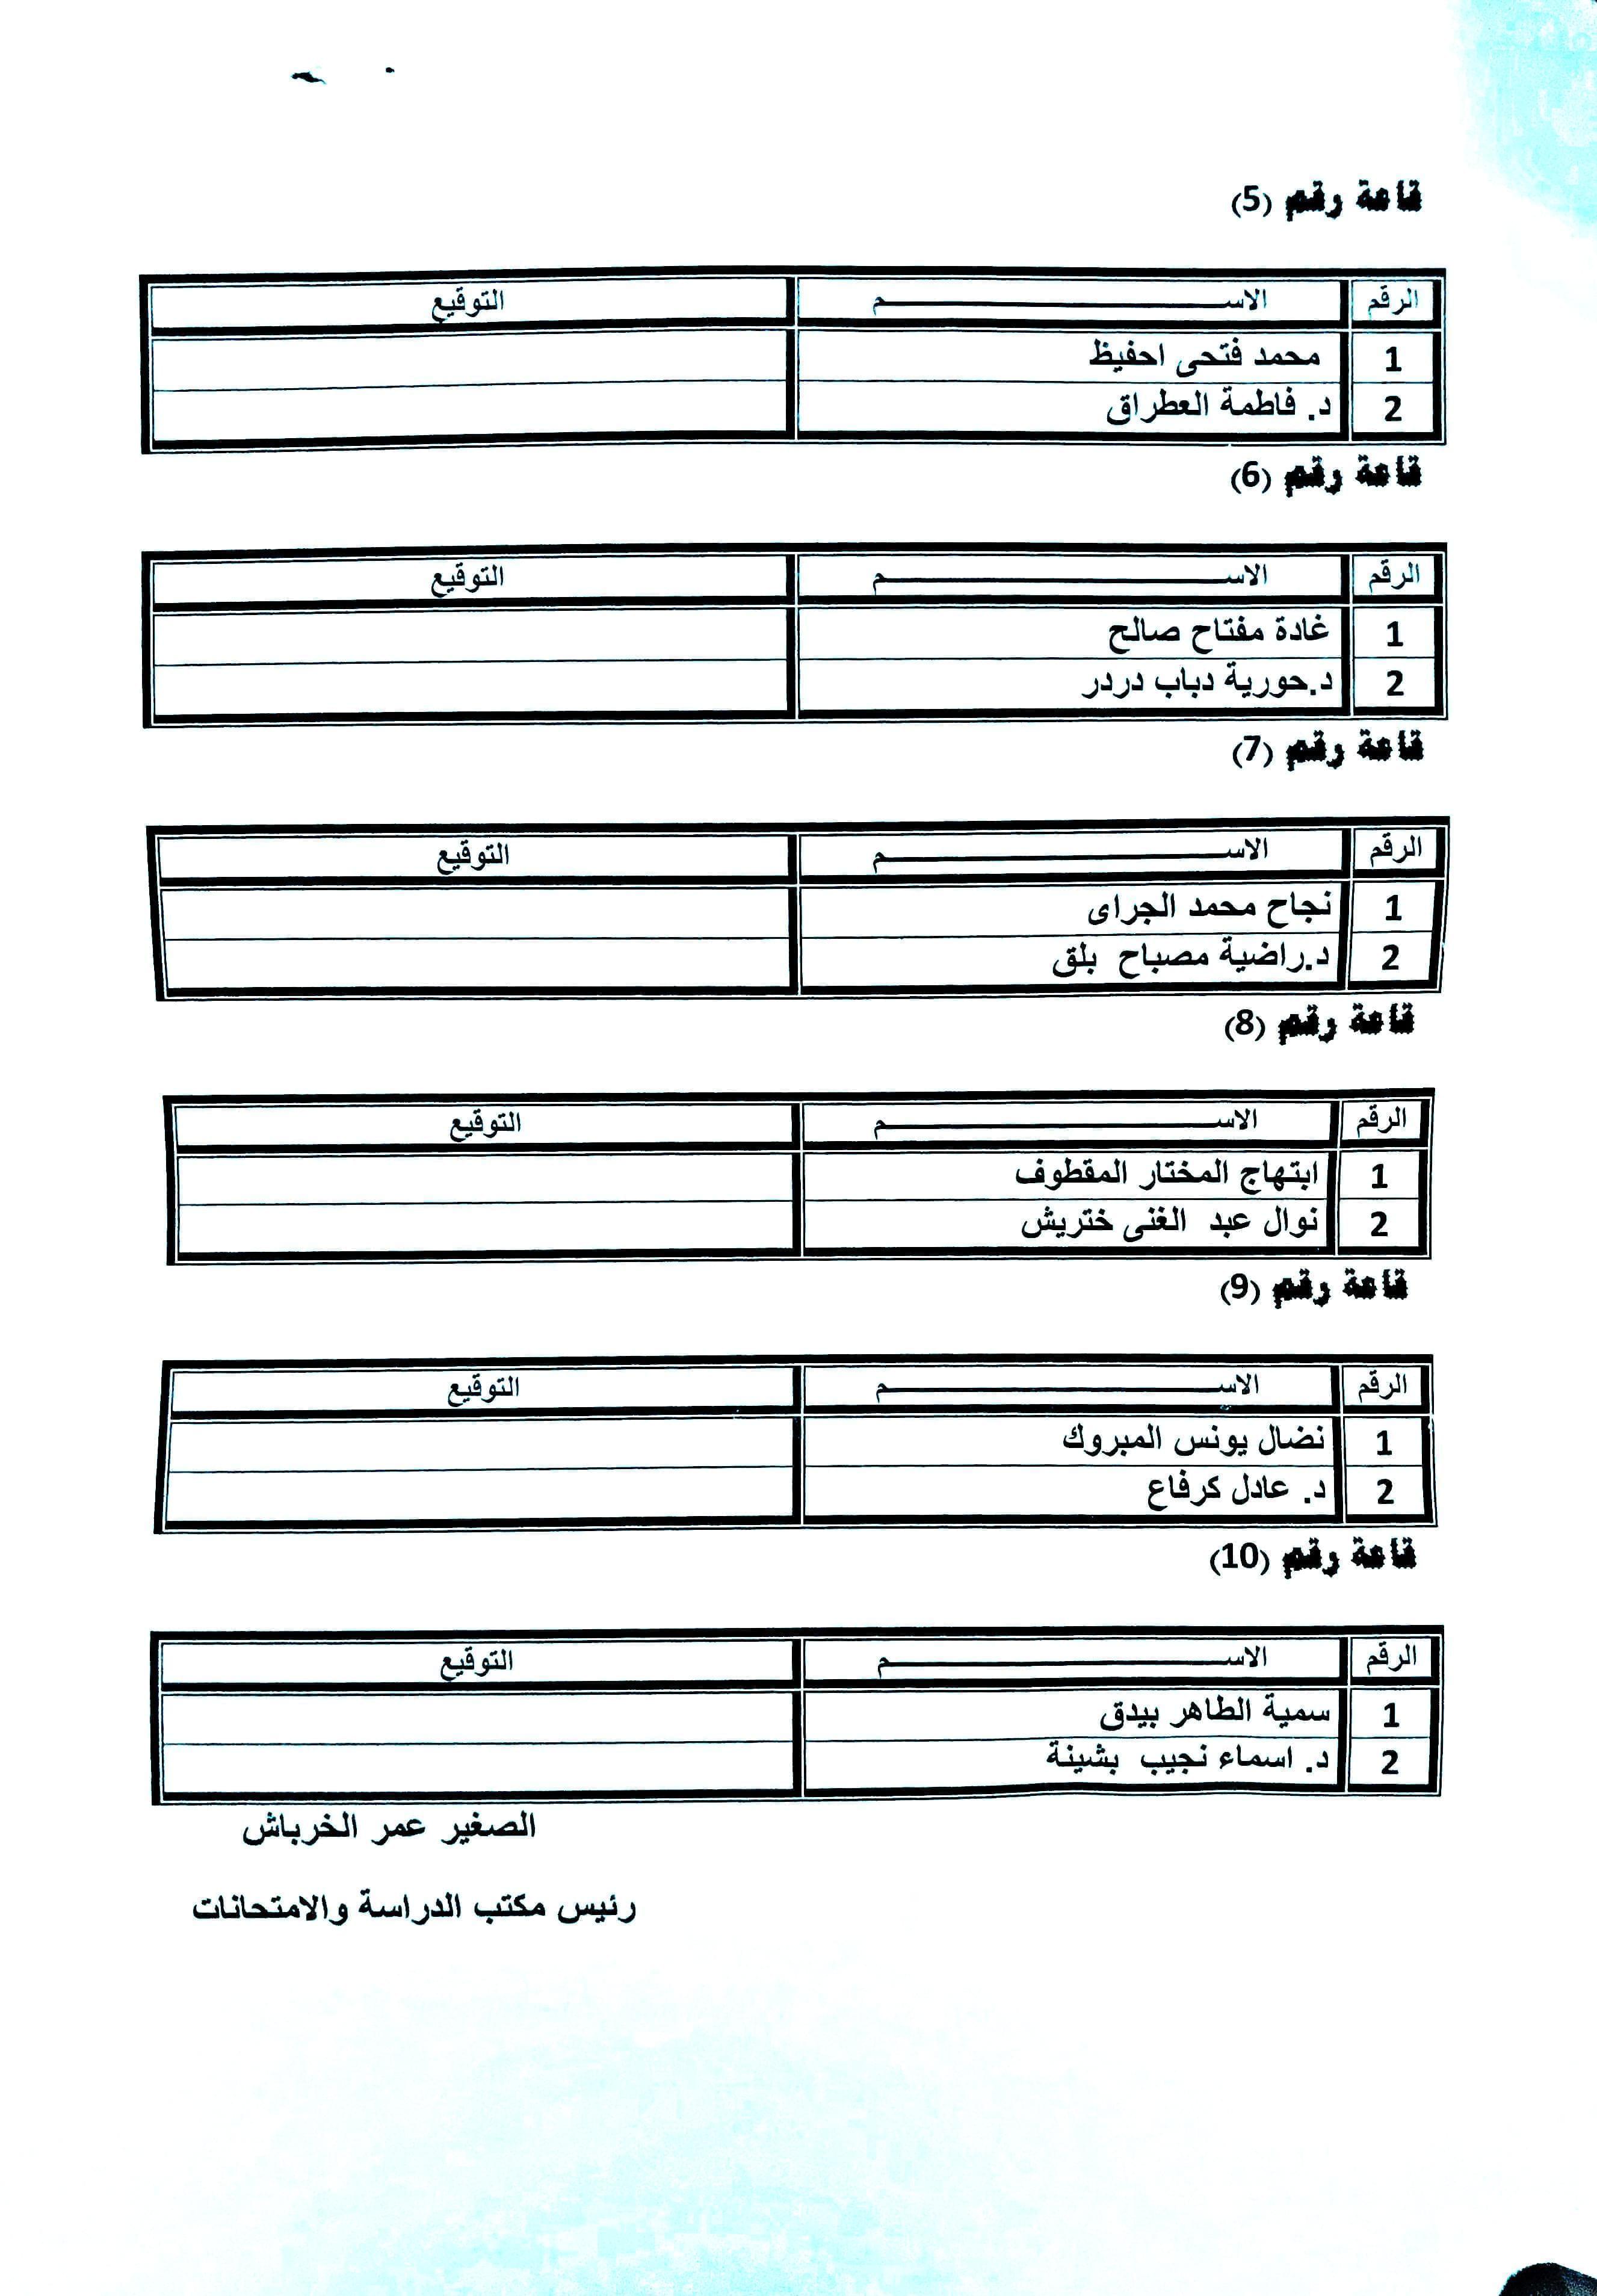 قاعة رقم (5)
الرقم الاســـــــــــم التوقيع
1 محمد فتحى احفيظ
2 د. فاطمة العطراق
قاعة رقم (6)
الرقم الاســـــــــــم التوقيع
1 غادة مفتاح صالح
2 د.حورية دباب دردر
قاعة رقم (7)
الرقم الاســـــــــــم التوقيع
1 نجاح محمد الجراى
2 د.راضية مصباح بلق
قاعة رقم (8)
الرقم الاســـــــــــم التوقيع
1 ابتهاج المختار المقطوف
2 نوال عبد الغنى ختريش
قاعة رقم (9)
الرقم الاســـــــــــم التوقيع
1 نضال يونس المبروك
2 د. عادل كرفاع
قاعة رقم (10)
الرقم الاســـــــــــم التوقيع
1 سمية الطاهر بيدق
2 د. اسماء نجيب بشينة
الصغير عمر الخرباش
رئيس مكتب الدراسة والامتحانات